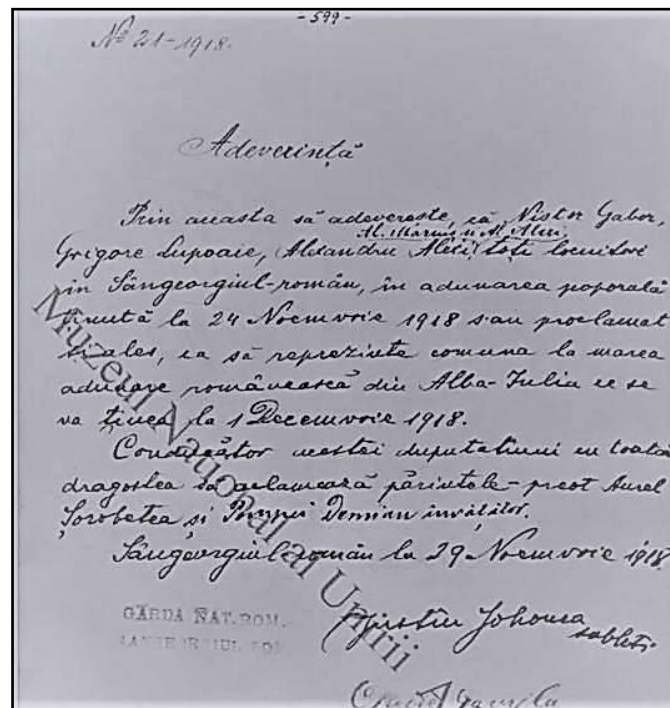 - 599 -
No 21-1918.
Adeverință
Prin aceasta să adevereste, că Nistor Gabor,
Al. Mărniș și Al. Aleci
Grigore Lupoaie, Alexandru Aleci toți locuitori
in Sângeorgiul-român, în adunarea poporală
ținută la 24 Noemvrie 1918 s-au proclamat
si ales, ca să reprezinte comuna la marea
adunare românească din Alba-Iulia ce se
va ținea la 1 Decemvrie 1918.
Conducător acestei deputatiuni cu toată
dragostea să aclamează părintele-preot Aurel
Șorobetea și Pompei Demian învățător.
Sângeorgiul-român la 29 Noemvrie 1918.
GARDA NAT. ROM.
Muzeul Național al Unirii